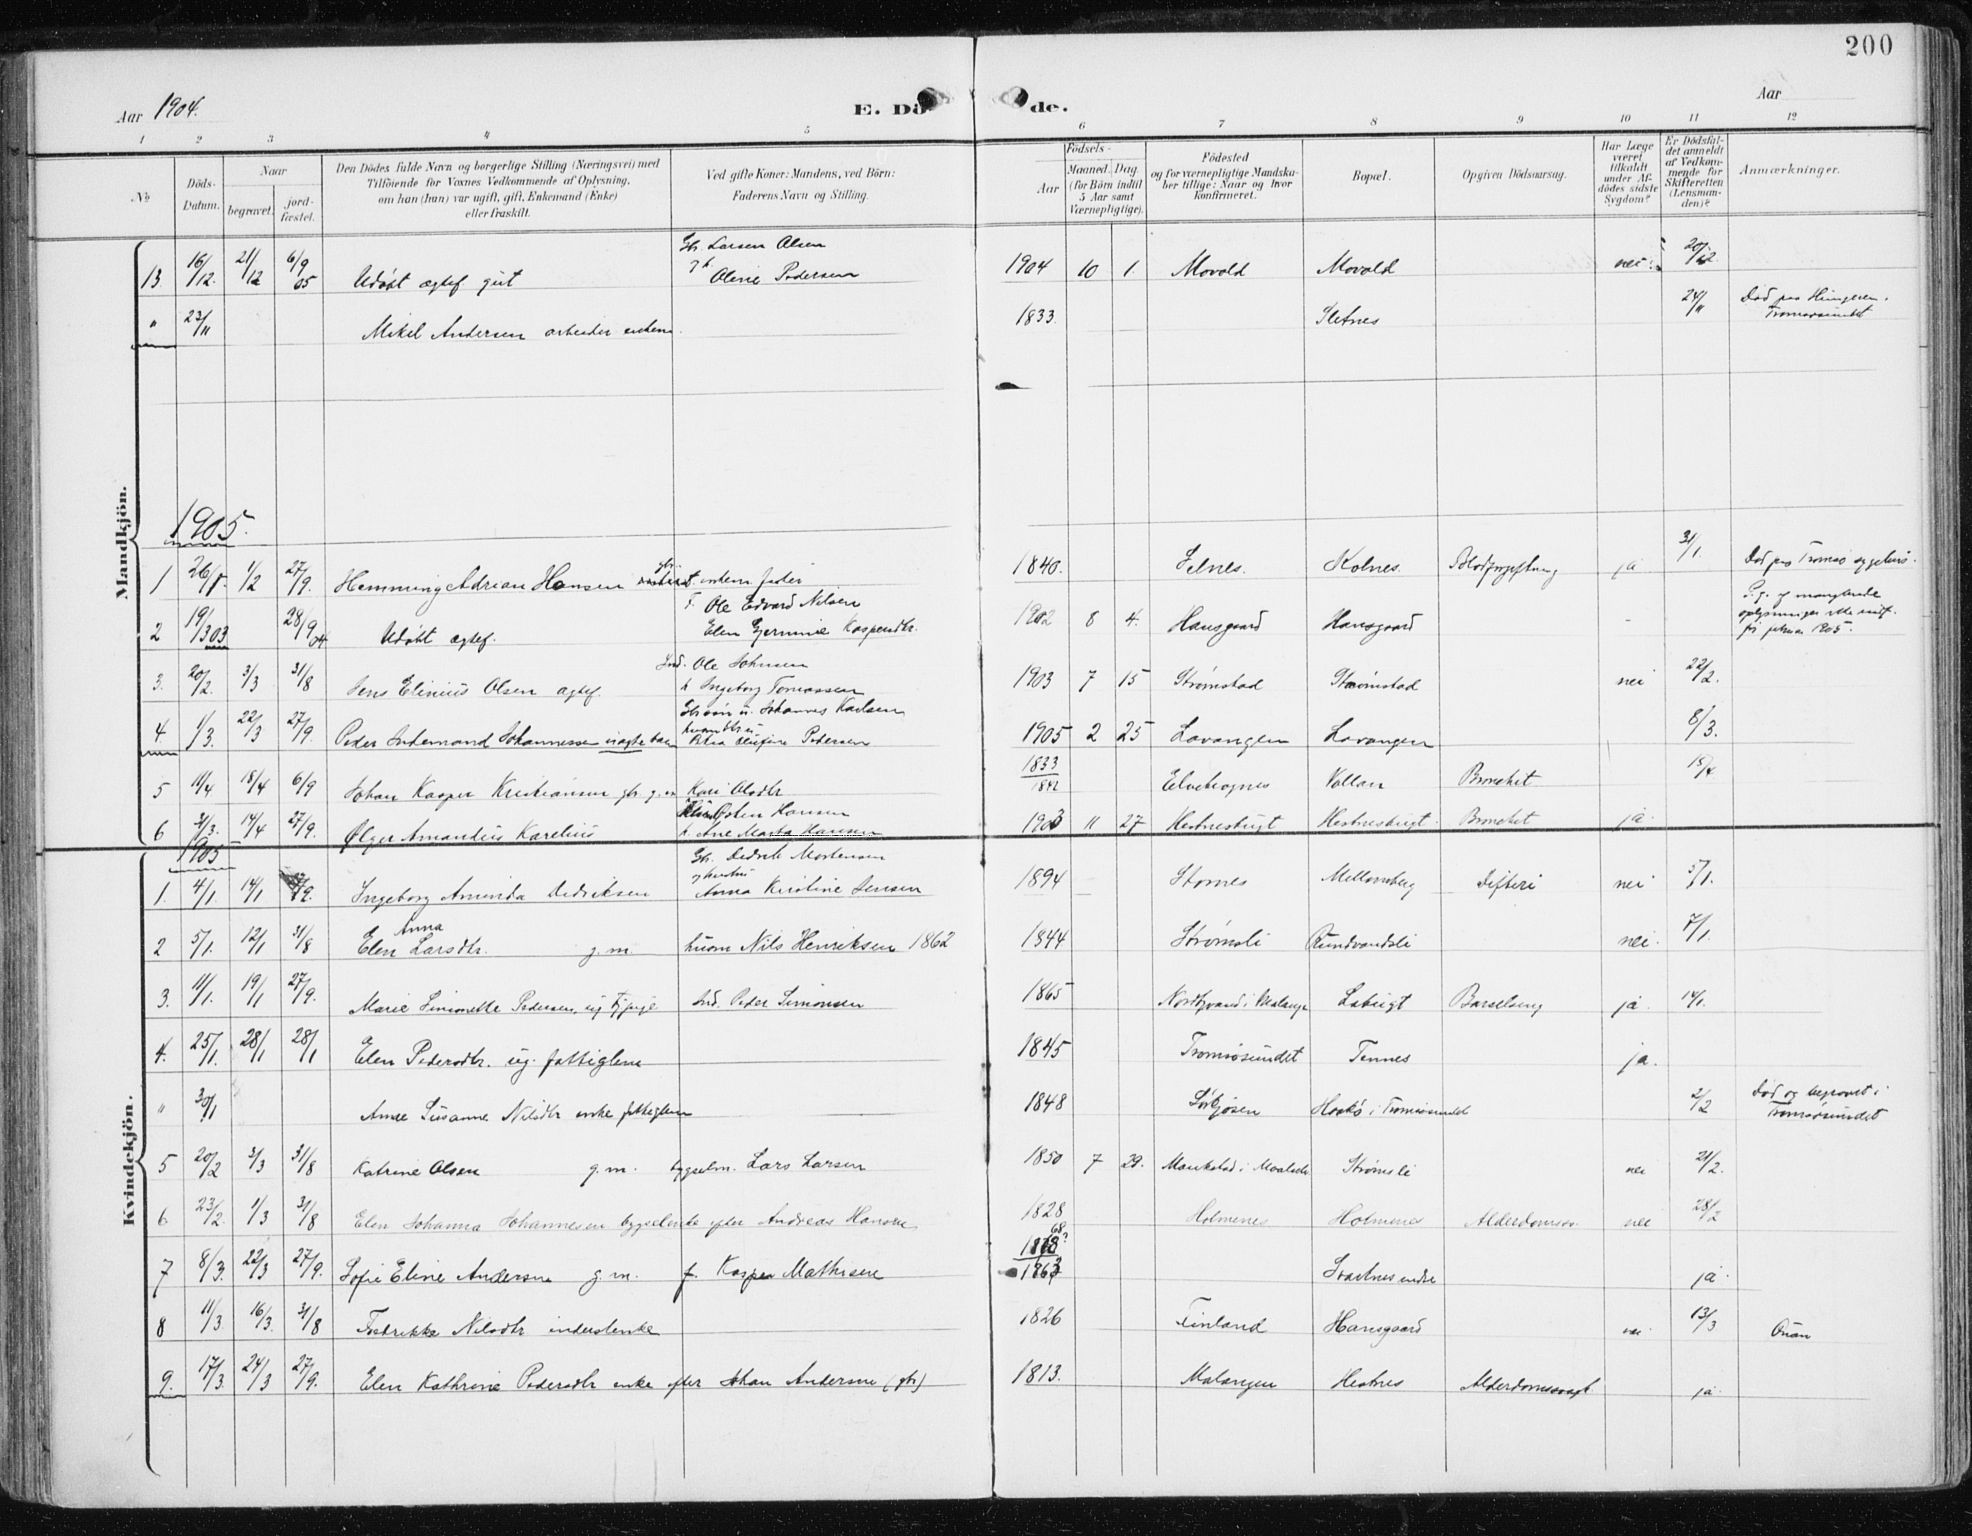 200
Aar 1904.
E. Dö de.
Aar
1 2 3 4 5 6 7 8 9 10 11 12
No
Döds-Datum.
Naar
begravet.
jord-fæstet.
Den Dödes fulde Navn og borgerlige Stilling (Næringsvei) med
Tilföiende for Voxnes Vedkommende af Oplysning,
om han (hun) var ugift, gift, Enkemand (Enke)
eller fraskilt.
Ved gifte Koner: Mandens, ved Börn:
Faderens Navn og Stilling.
Födsels-
Aar
Maaned. Dag.
(for Börn indtil
5 Aar samt
Værnepligtige).
Födested
og for værnepligtige Mandska-
ber tillige: Naar og hvor
konfirmeret.
Bopæl.
Opgiven Dödsaarsag.
Har Læge
været
tilkaldt
under Af-
dödes sidste
Sygdom?
Er Dödsfal-
det anmeldt
af Vedkom-
mende for
Skifteretten
(Lensman-
den)?
Anmærkninger.
Mandkjön.
Gbr. Larsen Olsen
13 16/12. 21/12 6/9 05 Udøbt ægtef gut Oline Pedersen 1904 10 1. Movold Movold nei 20/12
" 23/11 Mikel Andersen arbeider enkem. 1833. Sletnes 24/11 Død paa
Tromsøsundet
1905.
1 26/1 1/2 27/9. Hemming Adrian Hansen enkem. føder 1840. Selnes. Kolnes. Blodforgiftning ja 31/1 Død paa Tromsø sygehus.
F. Ole Edvard Nilsen
2 19/3 03 28/9 04 Udøbt ægtef. Elen Kaspersdtr. 1902 8 4. Hansgaard Hansgaard P.g. af manglende
oplysninger ikke indf.
før januar 1905.
Ind. Ole Johnsen
3. 20/2. 3/3 31/8 Jens Elinius Olsen ægtef. h Ingeborg Tomassen 1903 7 15 Strømstad Strømstad nei 22/2.
Johannes Karlsen
4 1/3. 22/3 27/9. Peder Johannessen uægte barn Olufine Pedersen 1905 2 25 Lavangen Lavangen 8/3.
5 11/4 18/4 6/9 Johan Kasper Kristiansen gbr. g.m Kari Olsdtr 1833
1842 Vollan Bronchit 15/4
Hansen
6 31/3. 14/4 27/9. Ølger Amandius Karelius h. Ane Marta Hansen 1903 11 27 Hestnesbugt Hestnesbugt Bronchit ja
Kvindekjön.
1905
Gbr. Dedrik Mortensen
1. 4/1. 14/1 27/9. Ingeborg Aminda Dedriksen Anna Kirstine Jensen 1894 Stornes Mellomberg Difteri nei 5/1.
Anna
2 5/1. 12/1 31/8 Elen Larsdtr. g.m. husm Nils Henriksen 1862 1844 Strømsli Rundvandsli nei. 7/1.
3. 11/1. 19/1 27/9. Marie Simonette Pedersen, ug tjpige Ind. Peder Simonsen 1865 i Malangen Labugt Barselseng ja. 14/1.
4. 25/1. 28/1 28/1 Elen Pedersdtr. ug. fattiglem 1845 Tromsøsundet Tennes ja.
" 30/1 Susanne Nilsdtr enke fattiglem 1848 Sørkjosen i Tromsøsundet 2/2 Død og begravet i
Tromsøsundet
5 20/2 3/3 31/8 Katrine Olsen g.m. bygselm. Lars Larsen 1850 7 29. i Maalselv Strømsli nei 21/2.
6 23/2. 1/3 31/8 Elen Johanna Johannesen bygselenke efter Andreas Hansen 1828 Holmenes Holmenes Alderdomssv. nei 28/2
68?
7 8/3. 22/3 27/9. Sofie Eline Andersen g.m. f. Kasper Mathisen 1863 Svartnes indre ja
8 11/3. 16/3. 31/8 Fredrikke Nilsdtr inderstenke 1826 Finland Hansgaard nei 13/3 Qvæn
9. 17/3. 24/3 27/9. Elen Kathrine Pedersdtr enke efter Johan Andersen (gbr) 1813. Malangen Hestnes Alderdomssvagh. ja.